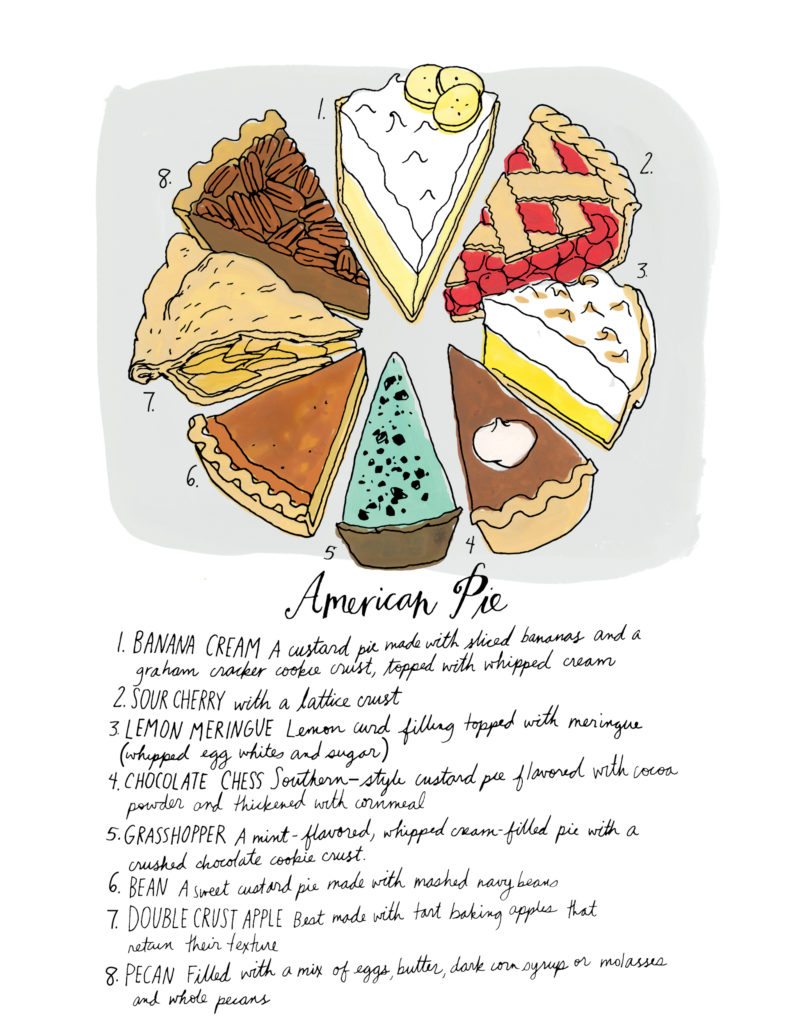 1.
2.
8.
3.
7.
6.
5
4
American Pie
1. BANANA CREAM A custard pie made with sliced bananas and a
graham cracker cookie crust, topped with whipped cream
2. SOUR CHERRY with a lattice crust
3. LEMON MERINGUE Lemon curd filling topped with meringue
(whipped egg whites and sugar)
4. CHOCOLATE CHESS Southern-style custard pie flavored with cocoa
powder and thickened with cornmeal
5. GRASSHOPPER A mint-flavored, whipped cream-filled pie with a
crushed chocolate cookie crust.
6. BEAN A sweet custard pie made with mashed navy beans
7. DOUBLE CRUST APPLE Best made with tart baking apples that
retain their texture
8. PECAN Filled with a mix of eggs, butter, dark corn syrup or molasses
and whole pecans